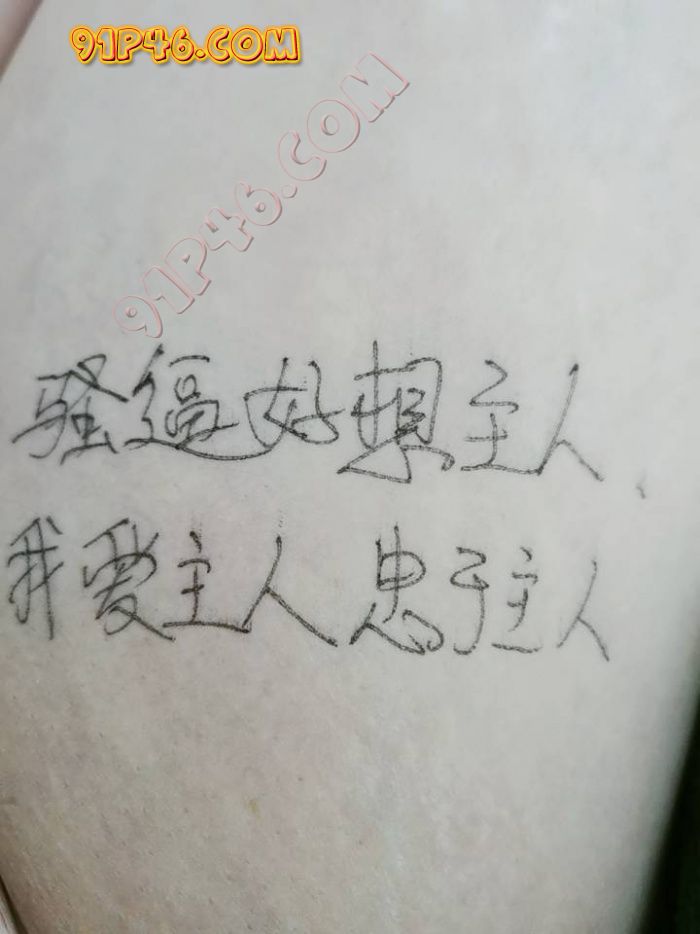 91P46.COM
91P46.COM
骚逼好想主人、
我爱主人 忠于主人